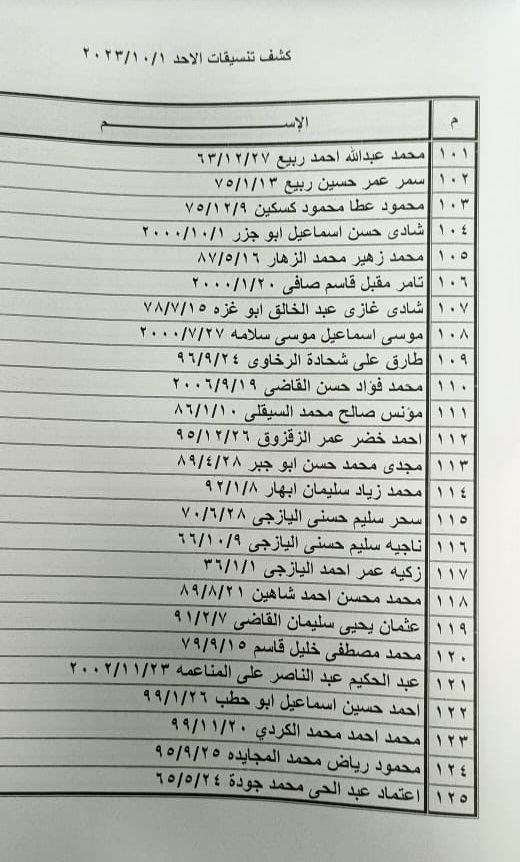 كشف تنسيقات الاحد ٢٠٢٣/١٠/١
م الإســـــــم
١٠١ محمد عبدالله احمد ربيع ٦٣/١٢/٢٧
١٠٢ سمر عمر حسين ربيع ٧٥/١/١٣
١٠٣ محمود عطا محمود كسكين ٧٥/١٢/٩
١٠٤ شادى حسن اسماعيل ابو جزر ٢٠٠٠/١٠/١
١٠٥ محمد زهير محمد الزهار ٨٧/٥/١٦
١٠٦ تامر مقبل قاسم صافى ٢٠٠٠/١/٢٠
١٠٧ شادى غازى عبد الخالق ابو غزه ٧٨/٧/١٥
١٠٨ موسى اسماعيل موسى سلامه ٢٠٠٠/٧/٢٧
١٠٩ طارق على شحادة الرخاوى ٩٦/٩/٢٤
١١٠ محمد فؤاد حسن القاضى ٢٠٠٦/٩/١٩
١١١ مؤنس صالح محمد السيقلى ٨٦/١/١٠
١١٢ احمد خضر عمر الزقزوق ٩٥/١٢/٢٦
١١٣ مجدى محمد حسن ابو جبر ٨٩/٤/٢٨
١١٤ محمد زياد سليمان ابهار ٩٢/١/٨
١١٥ سحر سليم حسنى اليازجى ٧٠/٦/٢٨
١١٦ ناجيه سليم حسنى اليازجى ٦٦/١٠/٩
١١٧ زكيه عمر احمد اليازجى ٣٦/١/١
١١٨ محمد محسن احمد شاهين ٨٩/٨/٢١
١١٩ عثمان يحيى سليمان القاضى ٩١/٢/٧
١٢٠ محمد مصطفى خليل قاسم ٧٩/٩/١٥
١٢١ عبد الحكيم عبد الناصر على المناعمه ٢٠٠٢/١١/٢٣
١٢٢ احمد حسين اسماعيل ابو حطب ٩٩/١/٢٦
١٢٣ محمد احمد محمد الكردي ٩٩/١١/٢٠
١٢٤ محمود رياض محمد المجايده ٩٥/٩/٢٥
١٢٥ اعتماد عبد الحى محمد جودة ٦٥/٥/٢٤